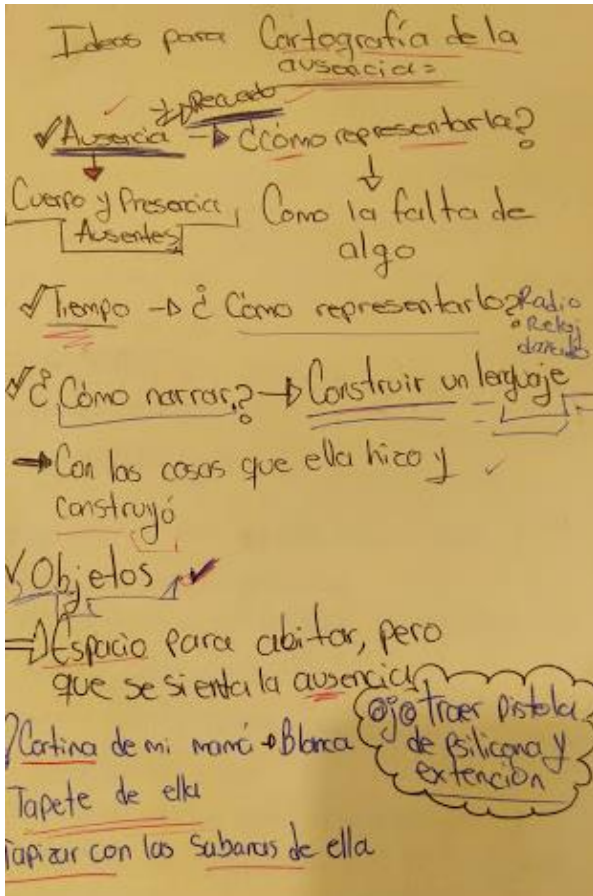 Ideas para Cartografía de la
ausencia =
Recuerdo
Ausencia → ¿Cómo representarla?
Cuerpo y Presencia Como la falta de
Ausentes algo
Tiempo → ¿Cómo representarlo? Radio
• Reloj
¿Cómo narrar? → Construir un lenguaje
→ Con las cosas que ella hizo y
construyó
Objetos
⇒ Espacio para abitar, pero
que se sienta la ausencia
Cortina de mi mamá → Blanca
Ojo traer Pistola
de psilicona y
extención
Tapete de ella
Tapizar con las Sabanas de ella